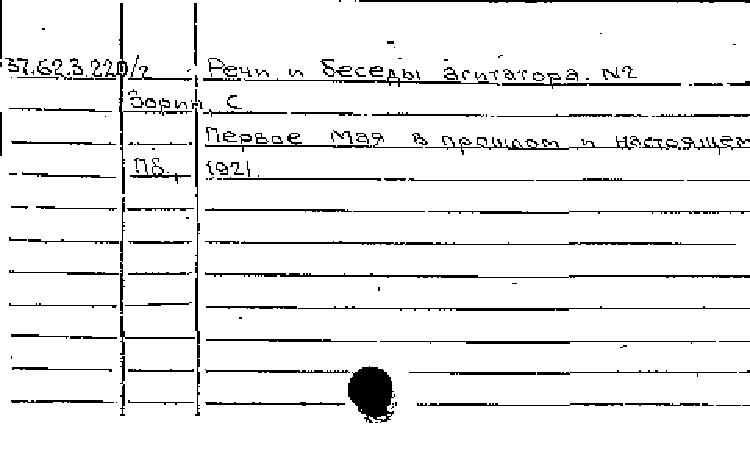 37.62.3.220/2 Речи и беседы агитатора. N2
Зорин, С
Первое Мая в прошлом и настоящем
Пб., 1921.